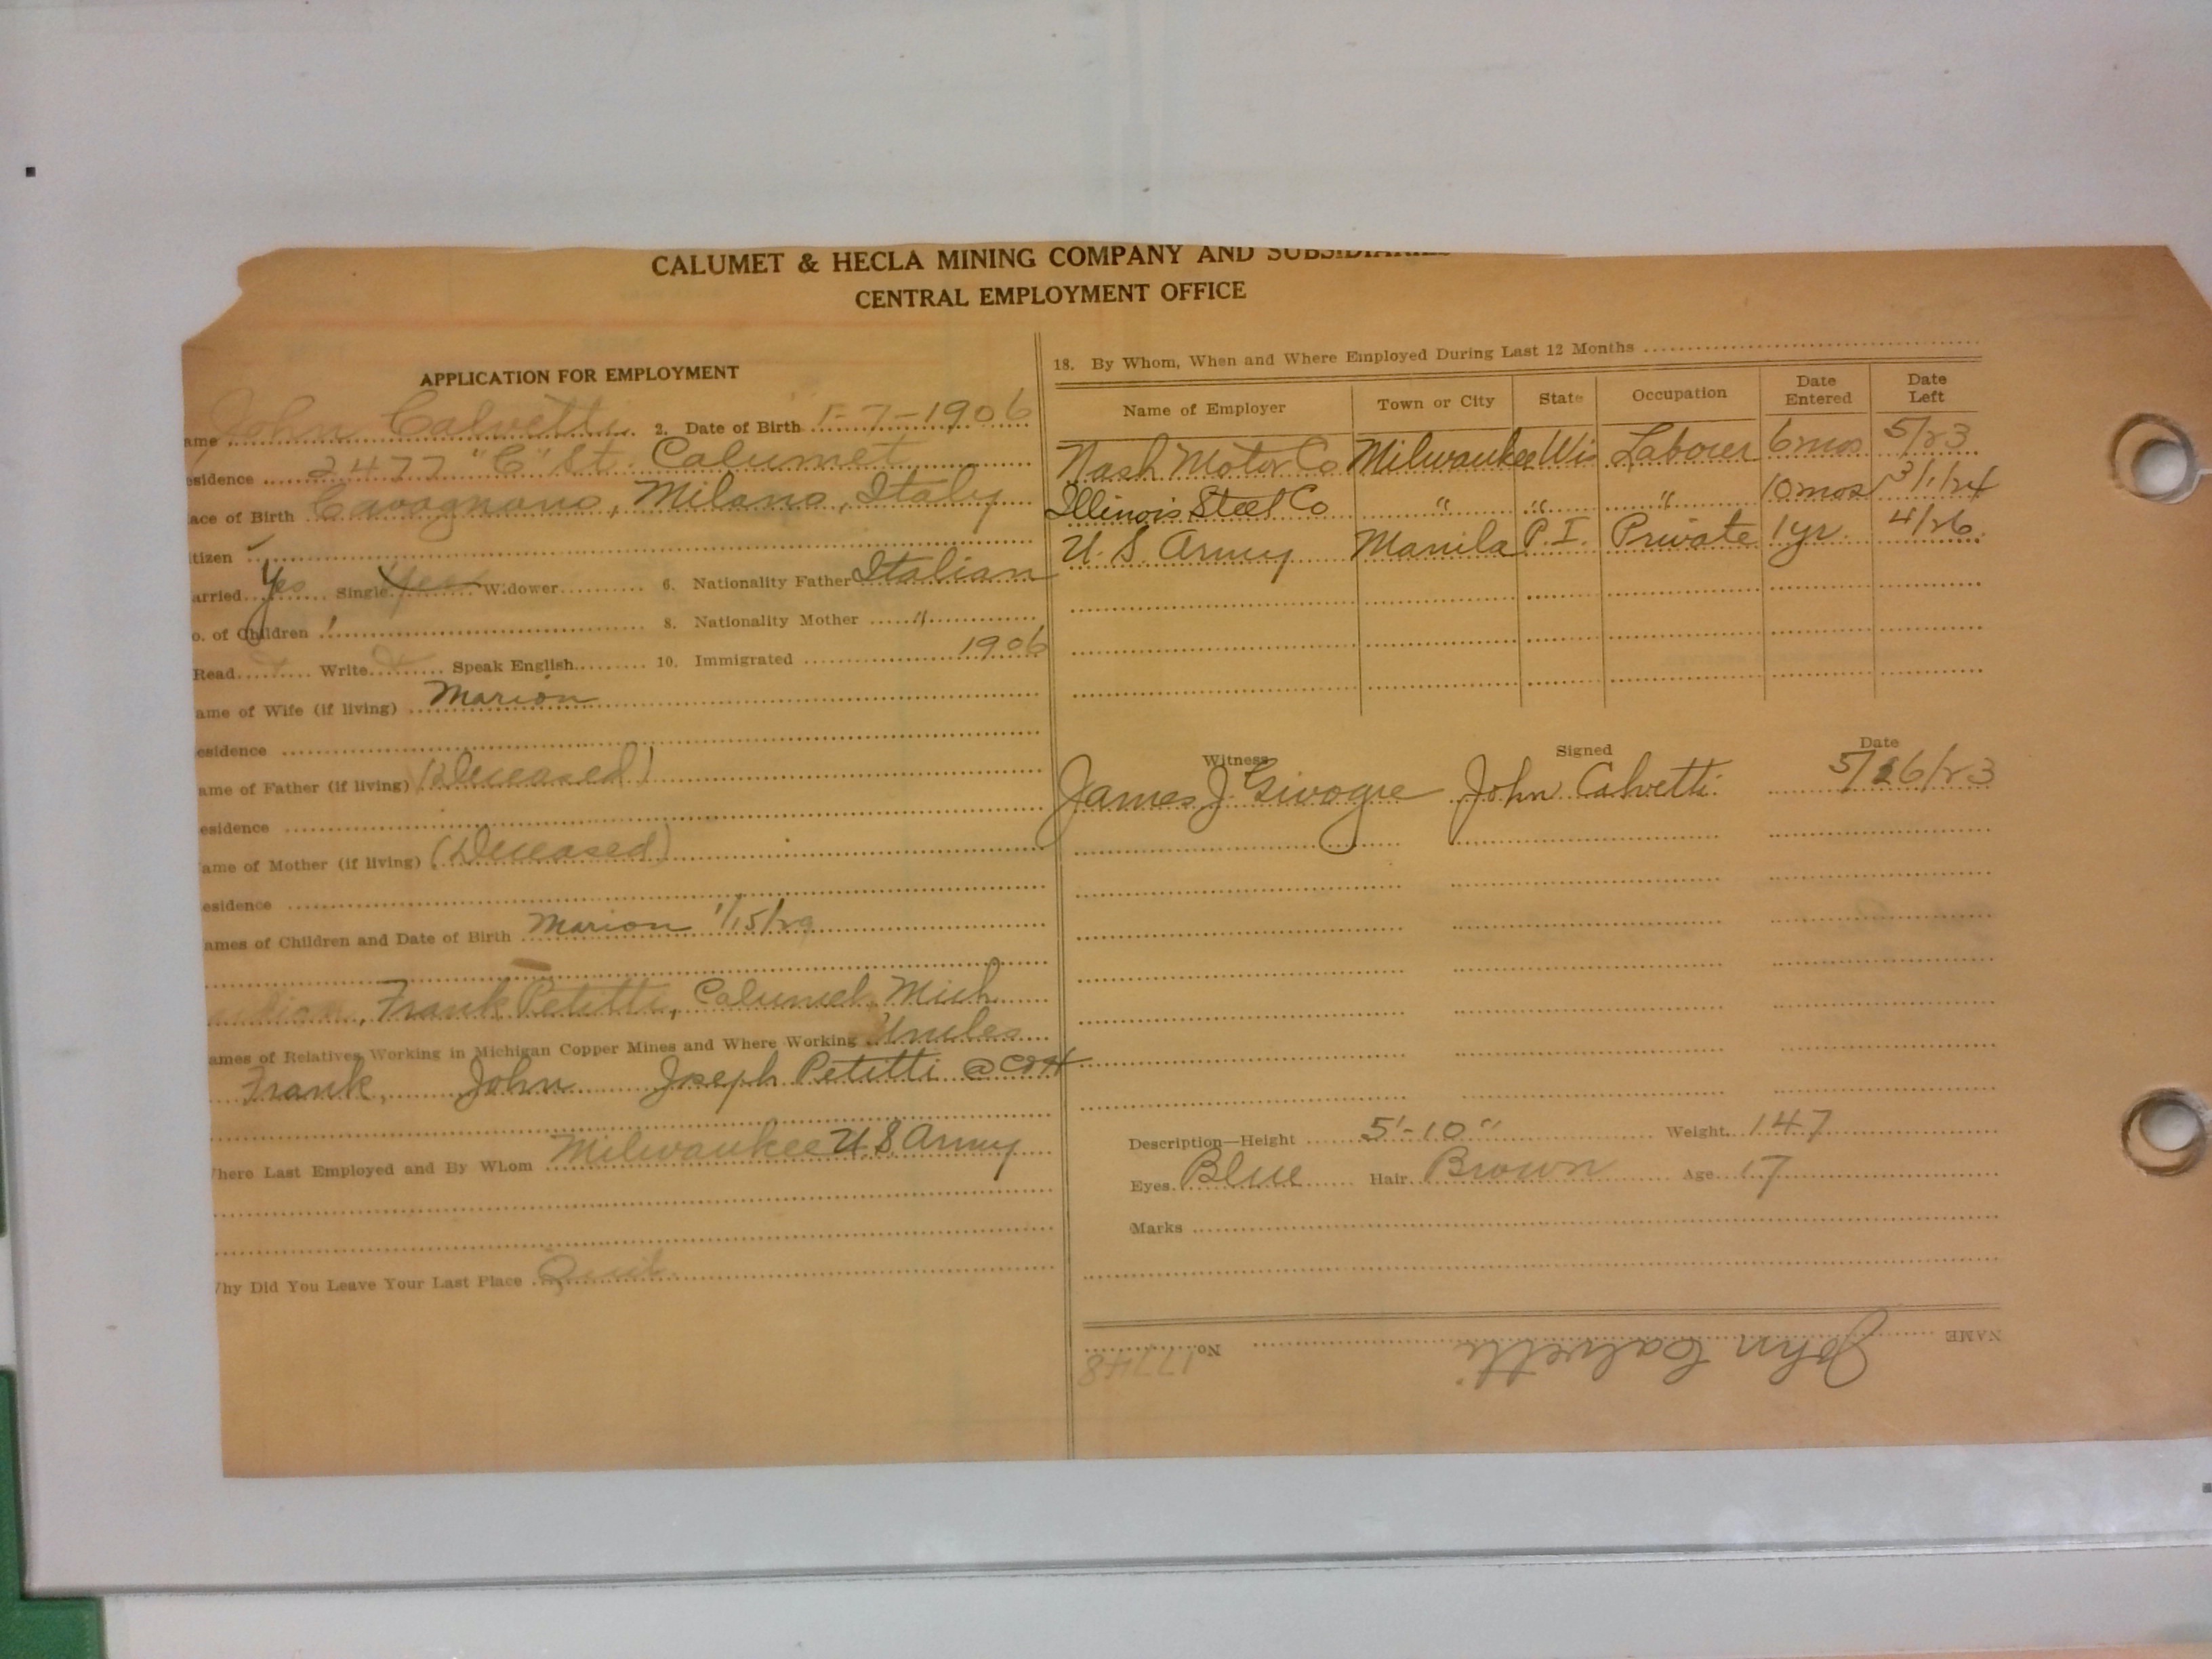 CALUMET & HECLA MINING COMPANY AND SUBSIDIARIES
CENTRAL EMPLOYMENT OFFICE
APPLICATION FOR EMPLOYMENT
ame John Calvetti 2. Date of Birth 1-7-1906
esidence 2477 "C" St. Calumet
ace of Birth Cavagnano, Milano, Italy
itizen
arried Yes Single Yes Widower 6. Nationality Father Italian
o. of Children 1 8. Nationality Mother "
Read Write Speak English 10. Immigrated 1906
ame of Wife (if living) Marion
esidence
ame of Father (if living) (Deceased)
esidence
ame of Mother (if living) (Deceased)
esidence
ames of Children and Date of Birth Marion 1/15/29
Frank Petitti, Calumet Mich
ames of Relatives Working in Michigan Copper Mines and Where Working Uncles
Frank, John Joseph Petitti @ C&H
here Last Employed and By Whom Milwaukee U.S. Army
hy Did You Leave Your Last Place Quit
18. By Whom, When and Where Employed During Last 12 Months
Name of Employer Town or City State Occupation Date Entered Date Left
Nash Motor Co Milwaukee Wis Laborer 6 mos 5/23
Illinois Steel Co " " " 10 mos 3/1/24
U. S. Army Manila P.I. Private 1 yr. 4/26
Witness Signed Date
James J. Givogre John Calvetti 5/26/23
Description—Height 5'-10" Weight 147
Eyes Blue Hair Brown Age 17
Marks
NAME John Calvetti No. 17748